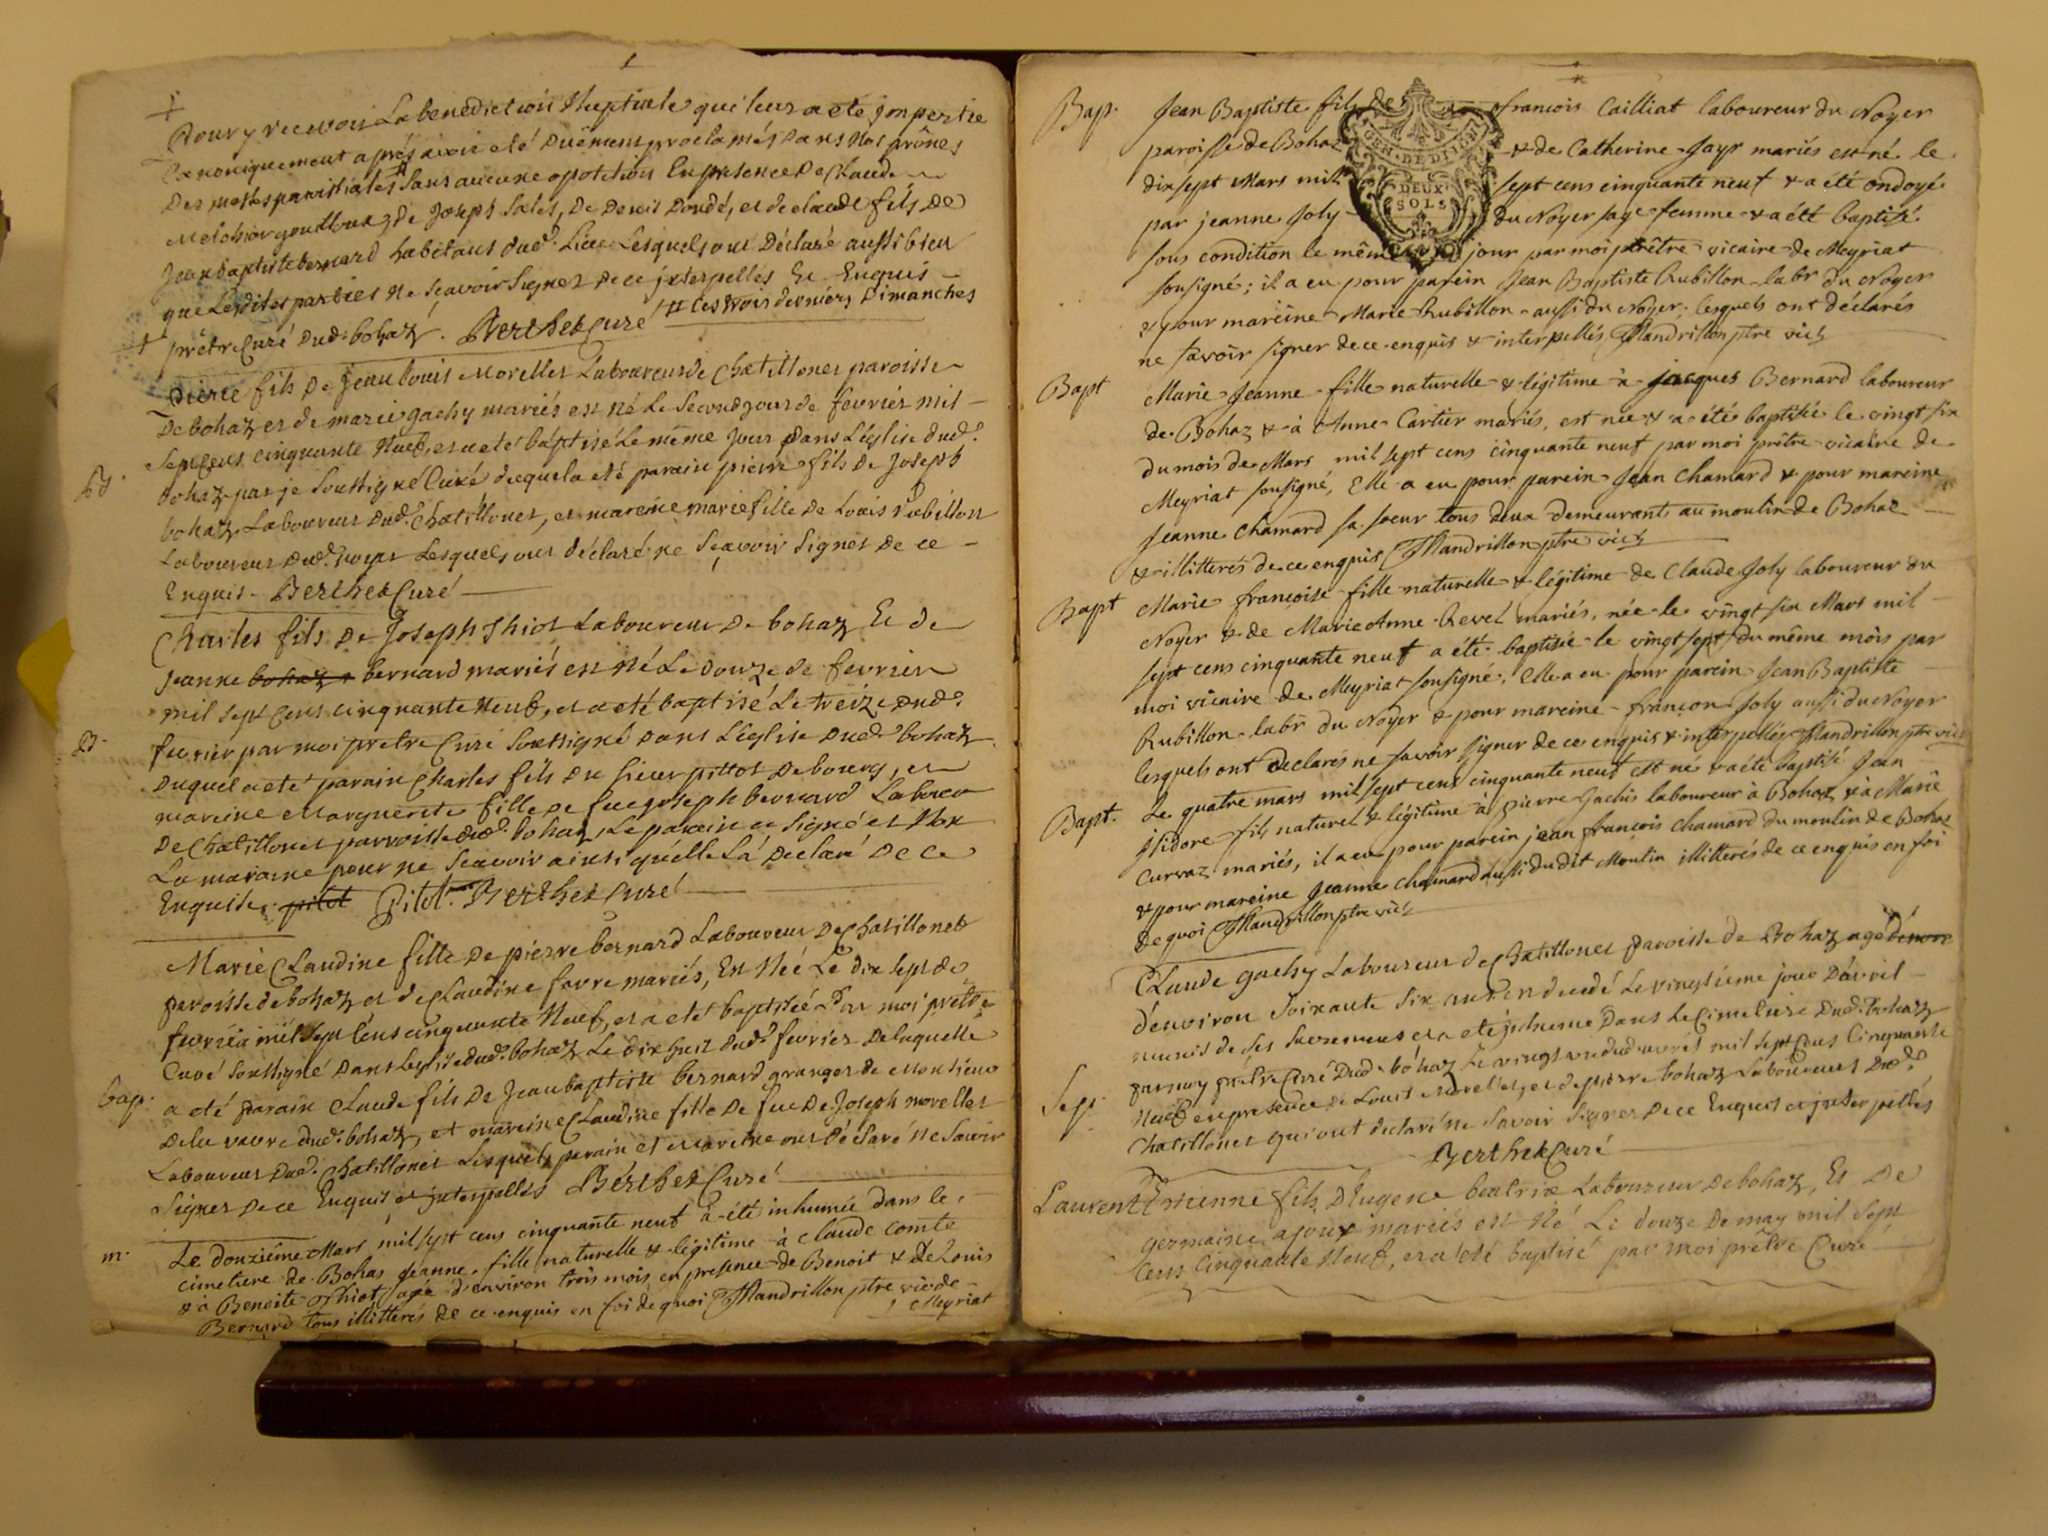 pour y recevoir La benediction Nuptiale qui leur a eté impertie
Canoniquement après avoir eté Duëment proclamés Dans Nos prônes
Des messes paroissiales # Sans aucune opotition En presence De Claude
Melchior goudloux, de Joseph Salés, De Denis Doudé, et de claude fils De
Jean baptiste bernard habitans dud. Lieu Lesquels ont Déclaré aussi bien
que Lesdites parties Ne Sçavoir Signer De ce interpellés Et Enquis
# Les trois derniers Dimanches
prêtre Curé Dud. bohaz. Berthet Curé
pierre fils De Jean louis Morellet Laboureur de Chatillonet paroisse
De bohaz et de marie gachy mariés est né Le Second jour de fevrier mil
Sept Cens cinquante Neuf, et a eté baptisé Le même Jour Dans L'église dud.
bohaz par je Soussigné Curé duquel a eté parain pierre fils De Joseph
bohaz Laboureur Dud. Chatillonet, et mareine marie fille De Louis rubillon
Laboureur Dud. Noyer Lesquels ont déclaré ne Sçavoir Signer De ce
Enquis. Berthet Curé
Charles fils De Joseph Thiot Laboureur De bohaz Et de
Jeanne bohaz bernard mariés est Né Le Douze de fevrier
mil Sept Cens cinquante Neuf, et a eté baptisé Le treize Dud.
B.
fevrier par moi prêtre Curé Soussigné Dans L'église Dud. bohaz
Duquel a eté parain Charles fils du Sieur pittot De bourg, et
mareine Marguerite fille De feu Joseph bernard Labour
De Chatillonet parroisse Dud. bohaz, Le parain a Signé et Non
La maraine pour ne Sçavoir ainsi qu'elle L'a Declaré De ce
Enquise. pitot Pitot. Berthet Curé
Marie Claudine fille De pierre bernard Laboureur De Chatillonet
paroisse de bohaz et de Claudine favre mariés, Est Née Le dix Sept de
fevrier mil Sept Cens cinquante Neuf, et a eté baptisée Par moi prêtre
Curé Soussigné Dans L'eglise dud. bohaz Le dix huit Dud. fevrier De laquelle
bap.
a eté parain Claude fils de Jean baptiste bernard granger de Monsieur
De la vavre dud. bohaz, et mareine Claudine fille De feu De Joseph morellet
Laboureur Dud. Chatillonet Lesquels parain et Mareine ont Déclaré Ne Savoir
Signer De ce Enquis et interpellés Berthet Curé
m.
Le douzième Mars mil sept cens cinquante neuf a été inhumée dans le
cimetiere de Bohas Jeanne fille naturelle & légitime à Claude Comte
& à Benoite Thiot, agée d'environ trois mois en presence de Benoit & de Louis
Bernard tous illitterés de ce enquis en foi de quoi Mandrillon ptre vic de
Meyriat
Bap.
Jean Baptiste fils de françois Cailliat laboureur du Noyer
paroisse de Bohaz & de Catherine Jayr mariés est né le
GEN. DE DIJON
DEUX
SOLS
dix sept Mars mil sept cens cinquante neuf & a été ondoyé
par jeanne Joly du Noyer sage femme & a été baptisé
sous condition le même jour par moi prêtre vicaire de Meyriat
sousigné; il a eu pour parein Jean Baptiste Rubillon labr du Noyer
& pour mareine Marie Rubillon aussi du Noyer; lesquels ont déclarés
ne savoir signer de ce enquis & interpellés Mandrillon ptre vic
Bapt
Marie Jeanne fille naturelle & légitime à jacques Bernard laboureur
de Bohaz & à Anne Cartier mariés, est née & a été baptisée le vingt six
du mois de Mars mil sept cens cinquante neuf par moi prêtre vicaire de
Meyriat sousigné, Elle a eu pour parein Jean Chamard & pour mareine
Jeanne Chamard sa soeur tous deux demeurants au moulin de Bohaz
& illitterés de ce enquis Mandrillon ptre vic
Bapt
Marie françoise fille naturelle & légitime de Claude Joly laboureur du
Noyer & de Marie Anne Revel mariés, née le vingt six Mars mil
sept cens cinquante neuf a été baptisée le vingt sept du même mois par
moi vicaire de Meyriat sousigné, Elle a eu pour parein Jean Baptiste
Rubillon labr du Noyer & pour mareine françon Joly aussi du Noyer
lesquels ont declarés ne savoir signer de ce enquis & interpellés Mandrillon ptre vic
Bapt.
Le quatre mars mil sept cens cinquante neuf est né & a été baptisé Jean
isidore fils naturel & légitime à pierre Gachis laboureur à Bohaz & à Marie
Curvaz mariés, il a eu pour parein jean françois Chamard du moulin de Bohaz
& pour mareine Jeanne Chamard aussi dudit Moulin illitterés de ce enquis en foi
de quoi Mandrillon ptre vic
Claude gachy Laboureur de Chatillonet paroisse de Bohaz agé
d'environ Soixante Six ans En decedé Le vingtième jour D'avril
munis de Ses Sacremens et a eté inhumé Dans Le Cimetiere Dud. bohaz
par moy prêtre Curé Dud. bohaz Le vingt un dud avril mil Sept Cens Cinquante
Sep.
Neuf en presence de Louis Morellet, et de pierre bohaz Laboureurs Dud.
Chatillonet qui ont declaré ne Savoir Signer De ce Enquis et interpellés
Berthet Curé
Laurent Etienne fils D'Eugene beatrix Laboureur De bohaz, Et De
germaine ajoux mariés est Né Le douze De may mil Sept
Cens Cinquante Neuf, et a eté baptisé par moi prêtre Curé